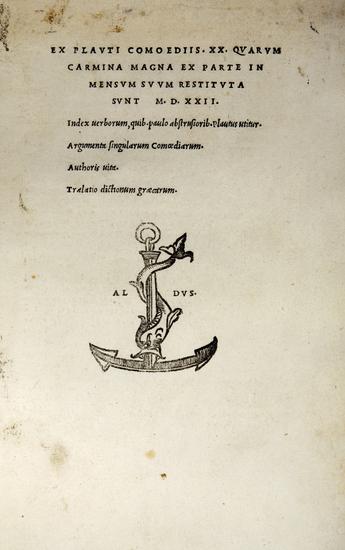 EX PLAVTI COMOEDIIS. XX. QVARVM
CARMINA MAGNA EX PARTE IN
MENSVM SVVM RESTITVTA
SVNT M. D. XXII.
Index uerborum, quib. paulo abstrusiorib. Plautus utitur.
Argumenta singularum Comœdiarum.
Authoris uita.
Tralatio dictionum græcarum.
AL DVS.